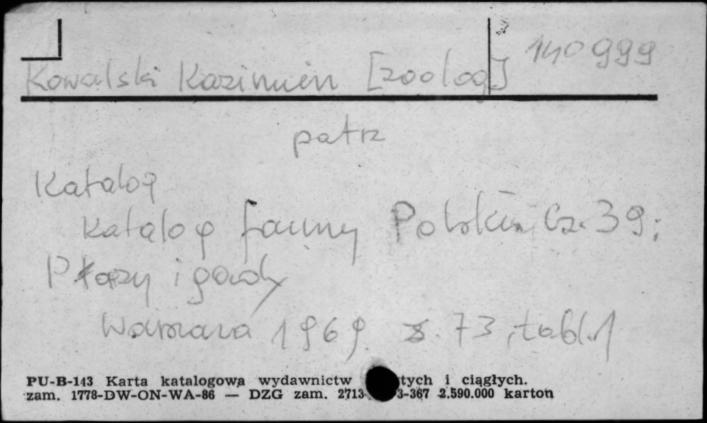 Kowalski Kazimierz [zoolog] 140999
patrz
Katalog
Katalog fauny Polski. Cz. 39;
Płazy i gady
Warszawa 1969. s. 73, tabl. 1
PU-B-143 Karta katalogowa wydawnictw tych i ciągłych.
zam. 1778-DW-ON-WA-86 — DZG zam. 2713 3-367 2.590.000 karton